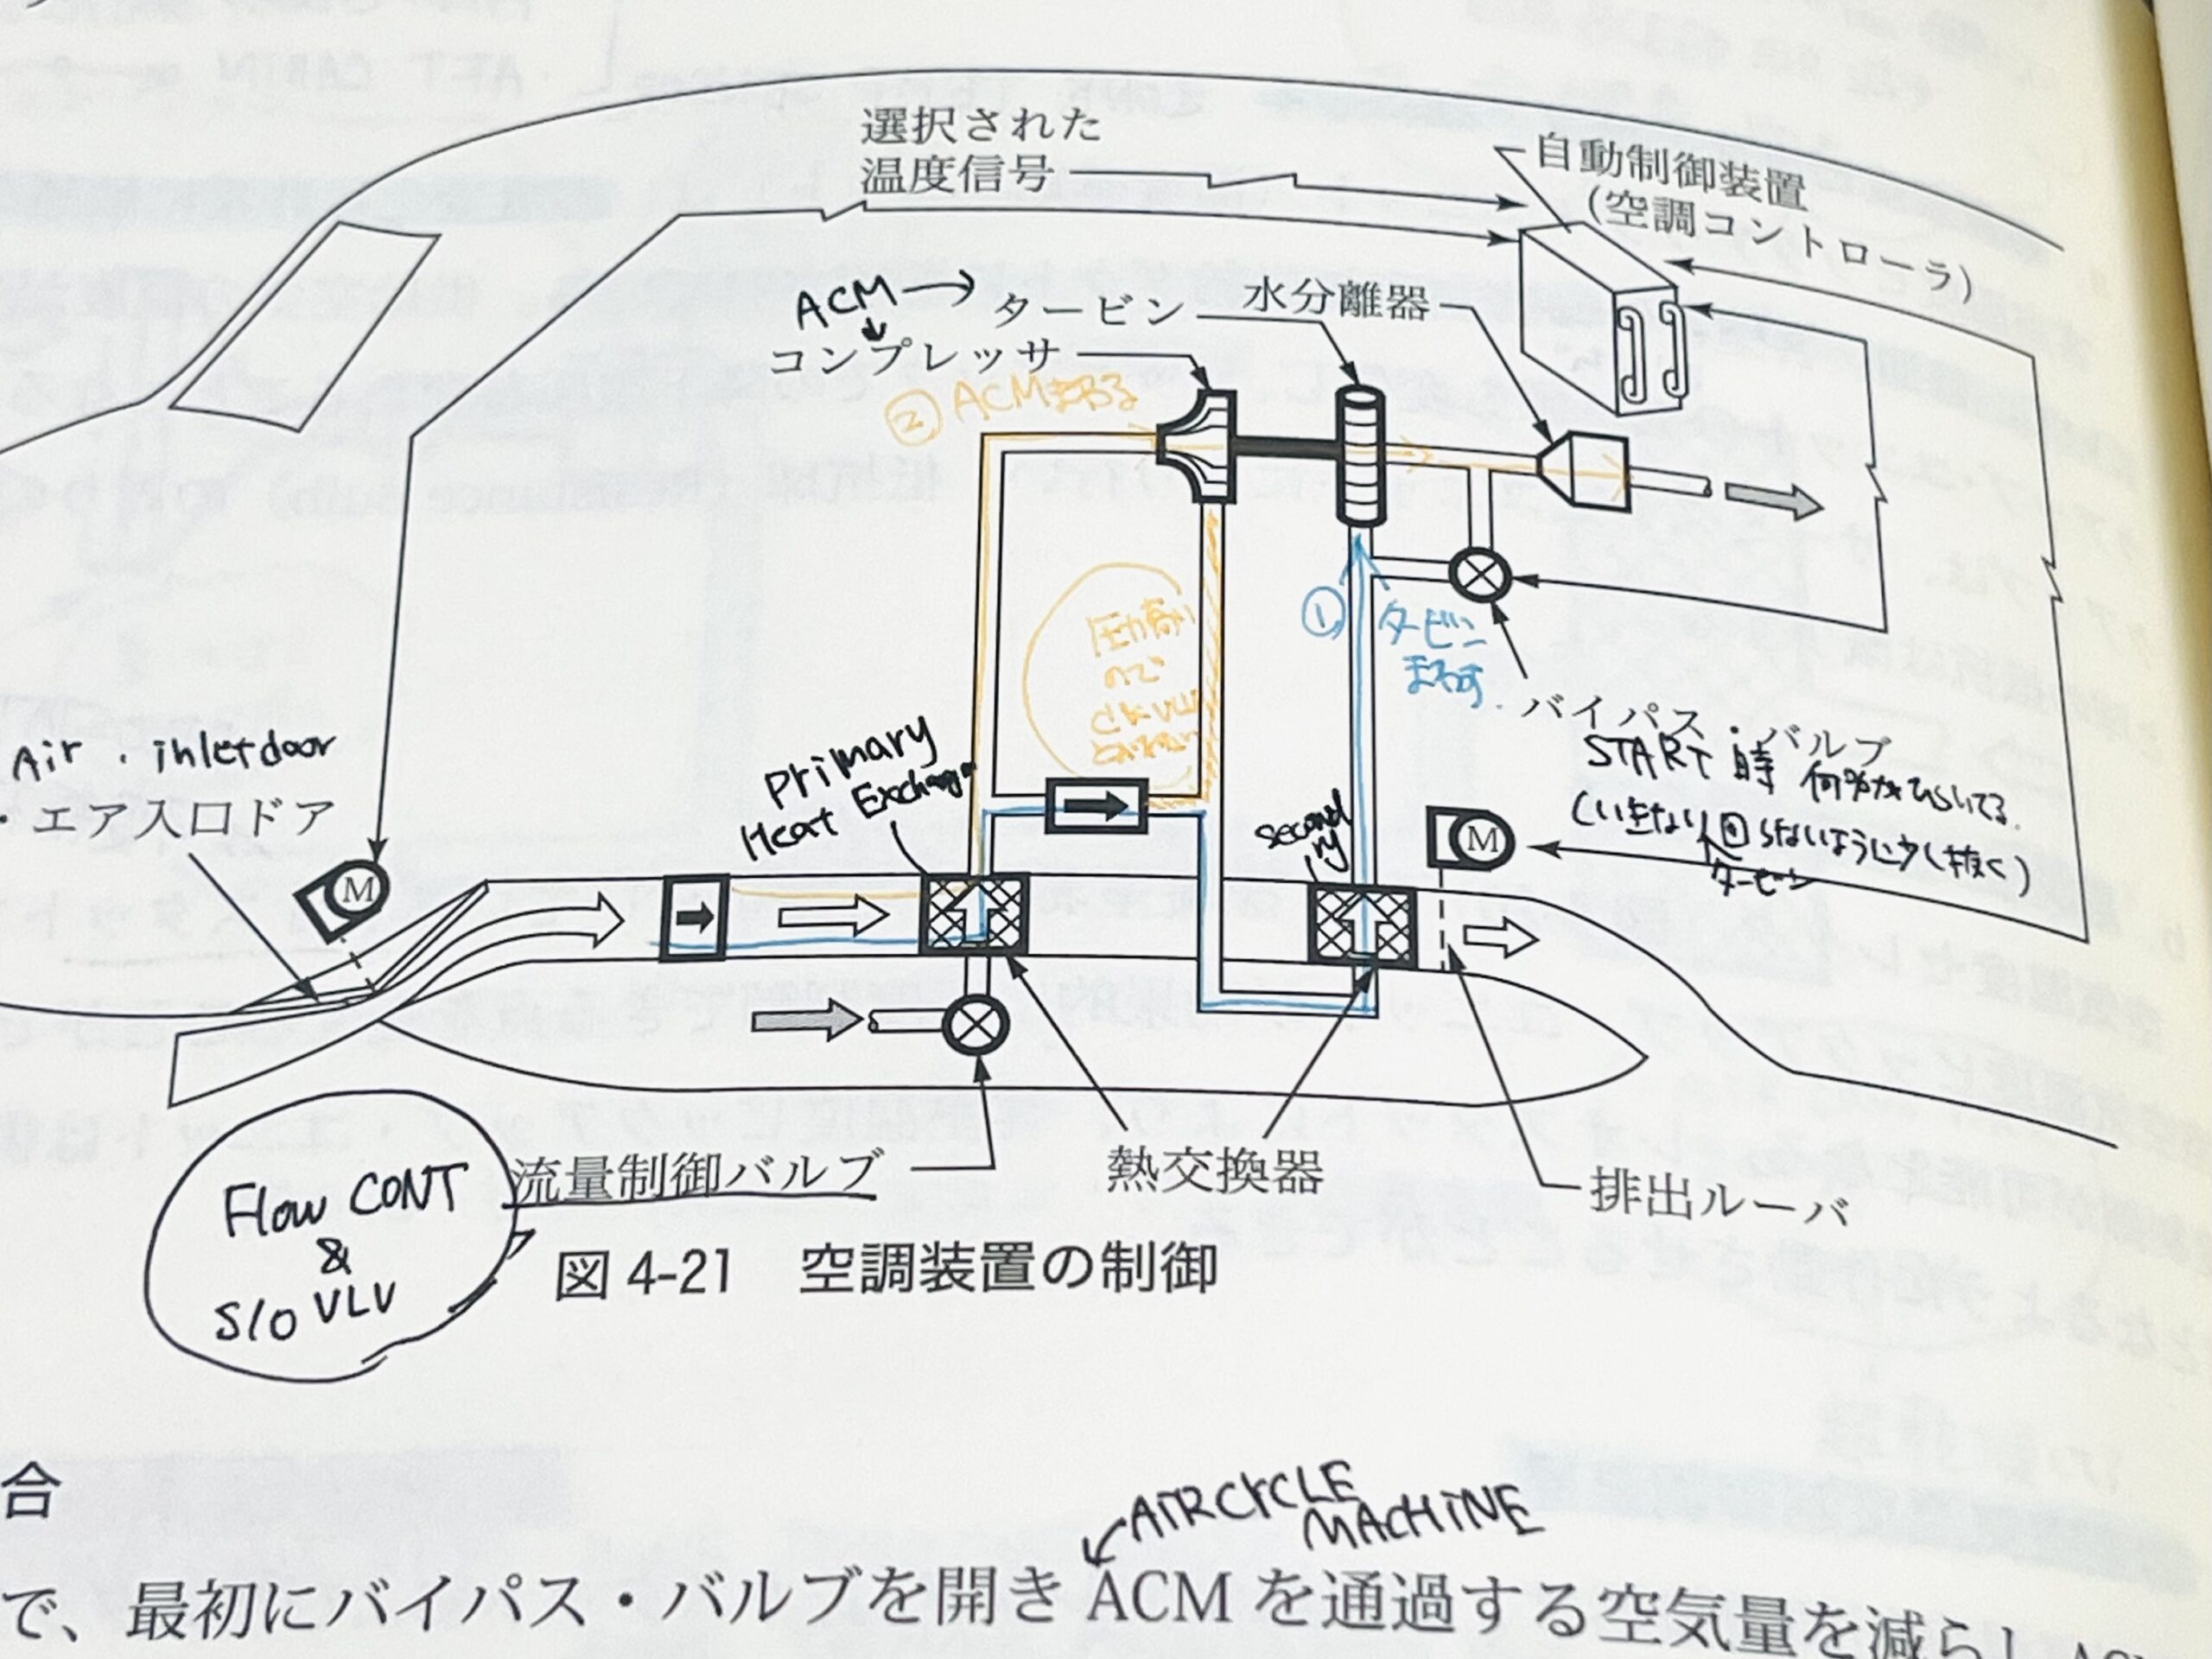 選択された
温度信号
自動制御装置
(空調コントローラ)
ACM→
タービン
水分離器
コンプレッサ
② ACMまわる
圧力高い
ので
①
タービン
まわす
バイパス・バルブ
START時 何%かひらいてる.
(いきなり回らないように少し抜く)
タービン
Air・inlet door
・エア入口ドア
M
Primary
Heat Exchanger
second
ry
M
Flow CONT
&
S/O VLV
流量制御バルブ
熱交換器
排出ルーバ
図 4-21 空調装置の制御
合
AIRCYCLE
MACHINE
で、最初にバイパス・バルブを開き ACM を通過する空気量を減らし